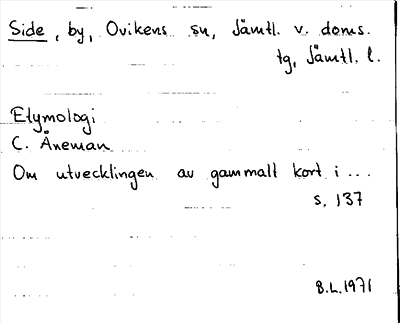 Side, by, Ovikens sn, Jämtl. v. doms.
tg, Jämtl. l.
Etymologi
C. Åneman
Om utvecklingen av gammalt kort i ...
s. 137
B.L. 1971